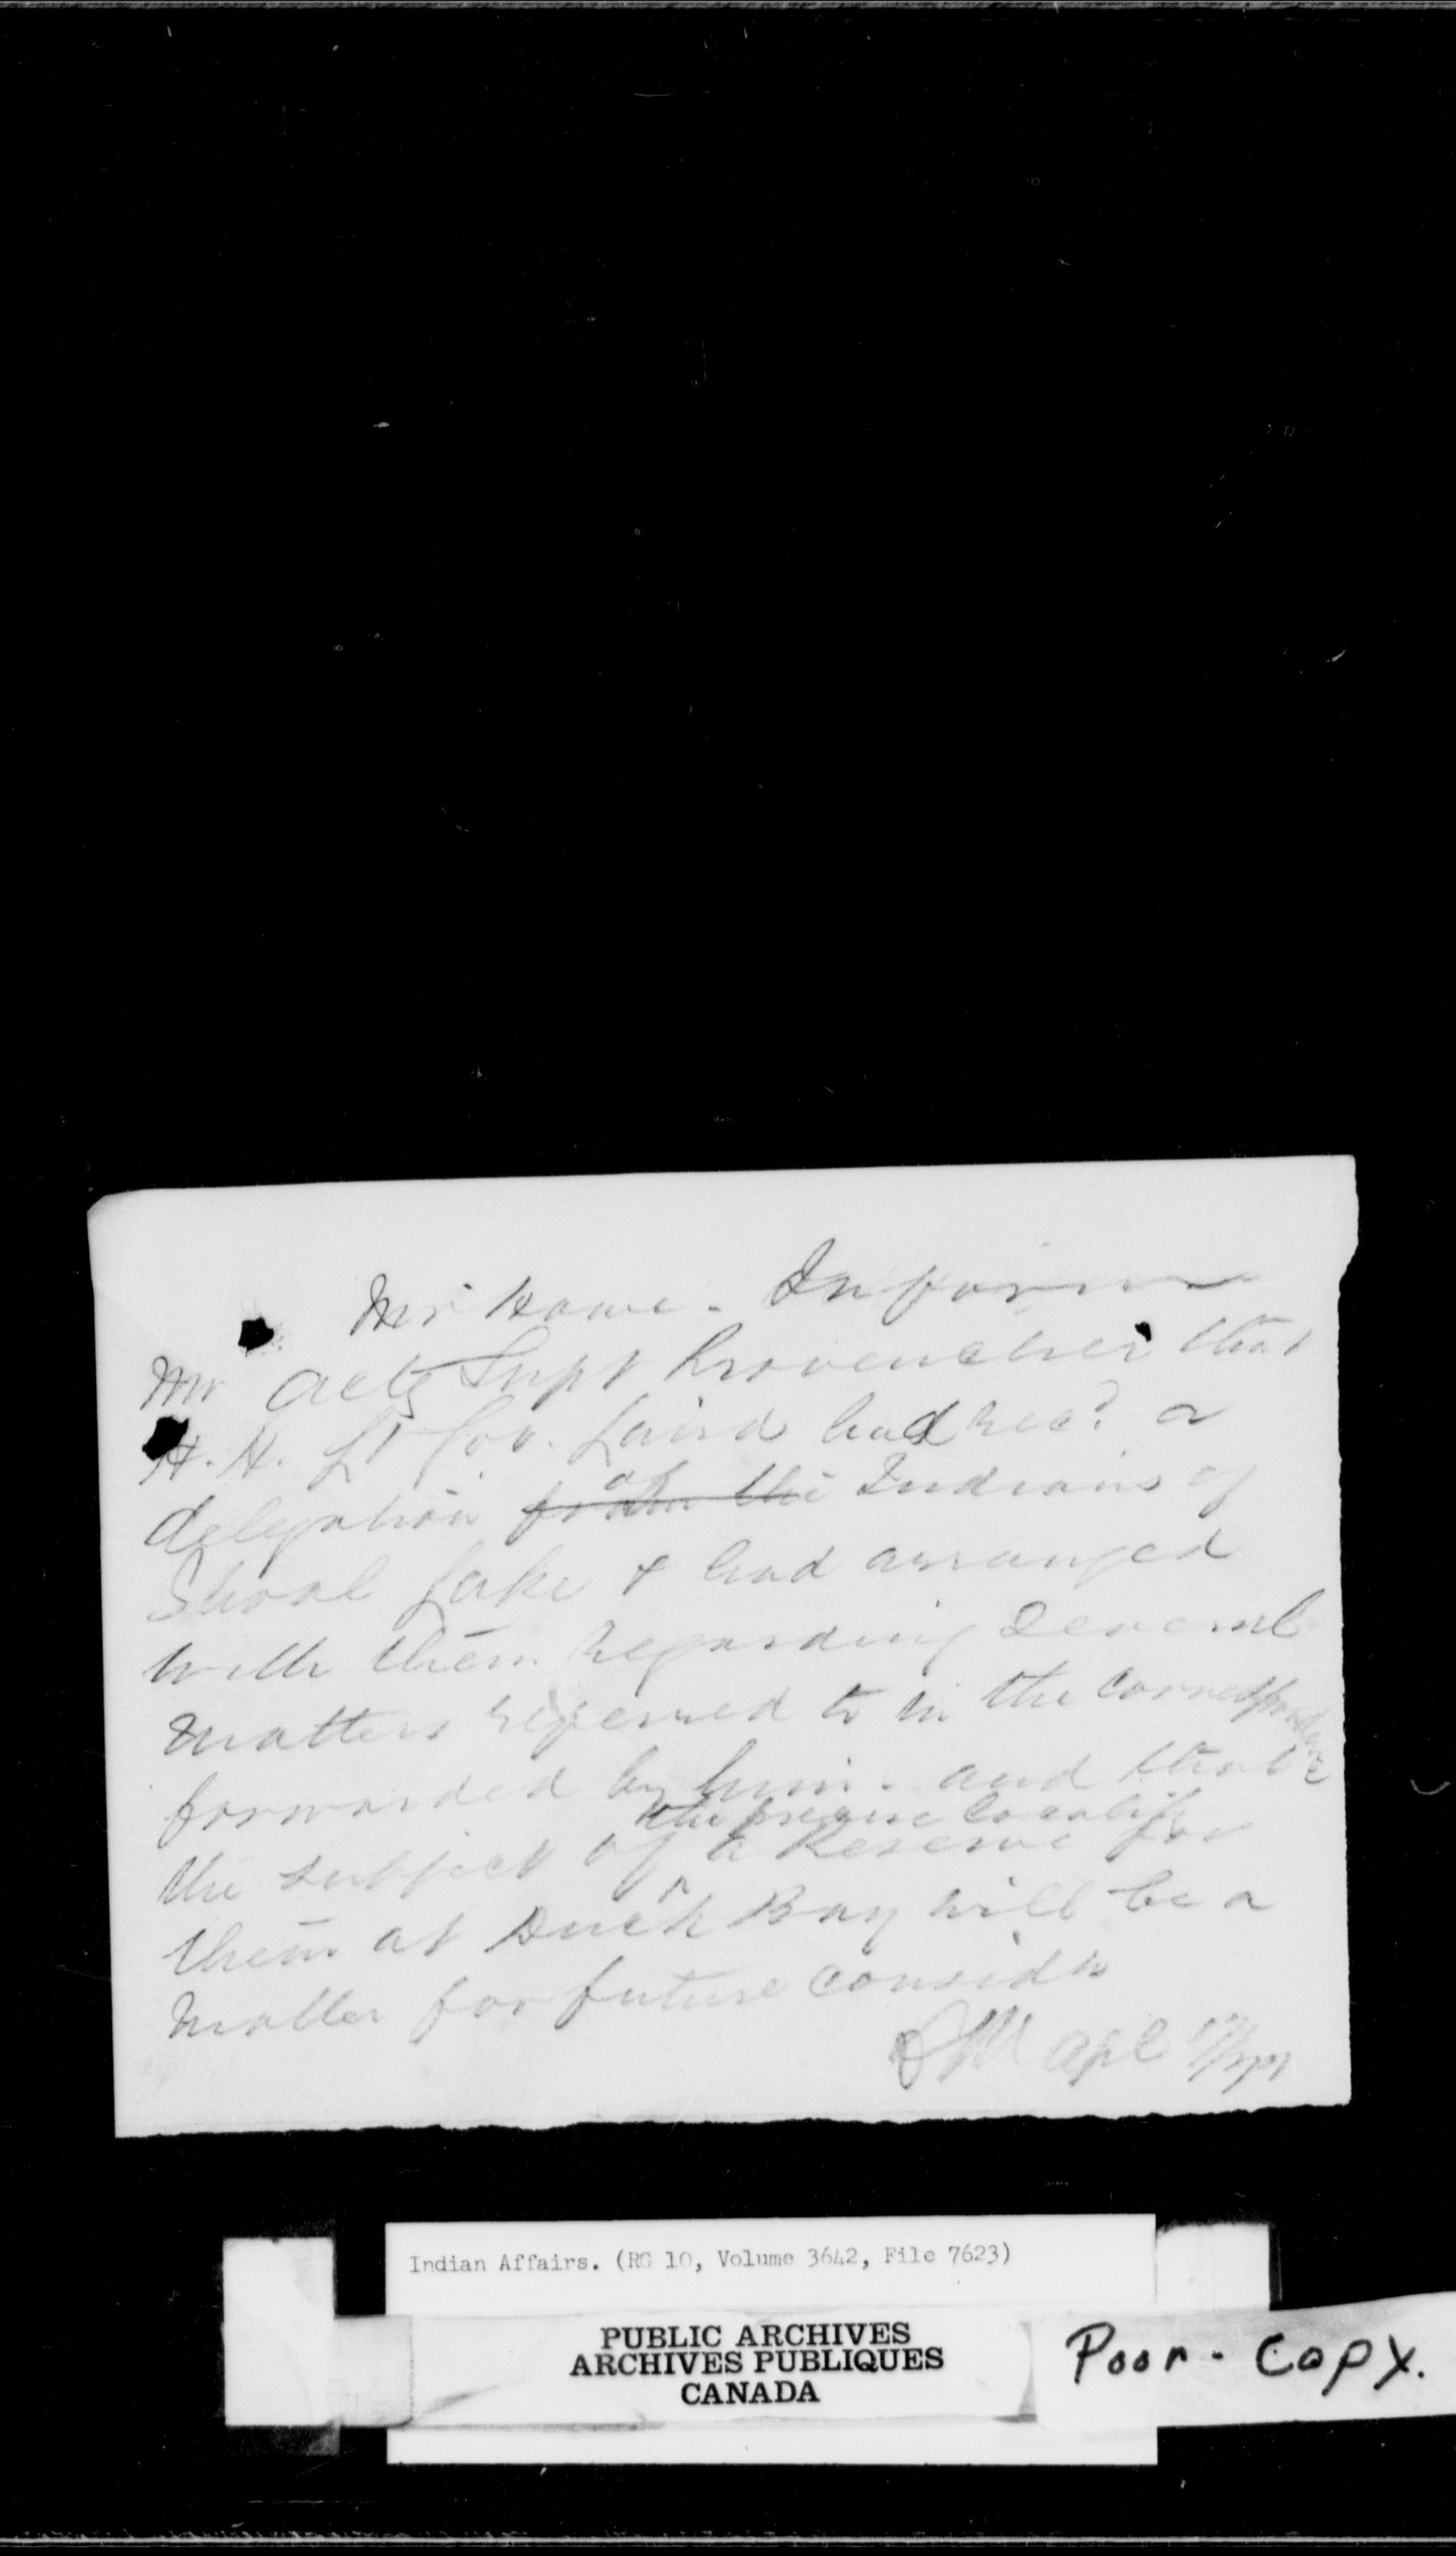 Mr Howe. Inform
Mr actg Supt Provencher that
H.H. Lt Gov. Laird had recd. a
delegation from the of Indians of
Shoal Lake & had arranged
with them regarding several
matters referred to in the correspondence
forwarded by him. and that
the precise locality
the subject of a Reserve for
them at Duck Bay will be a
matter for future considn
Apl 17/77
Indian Affairs. (RG 10, Volume 3642, File 7623)
PUBLIC ARCHIVES
ARCHIVES PUBLIQUES
CANADA
Poor - Copy.